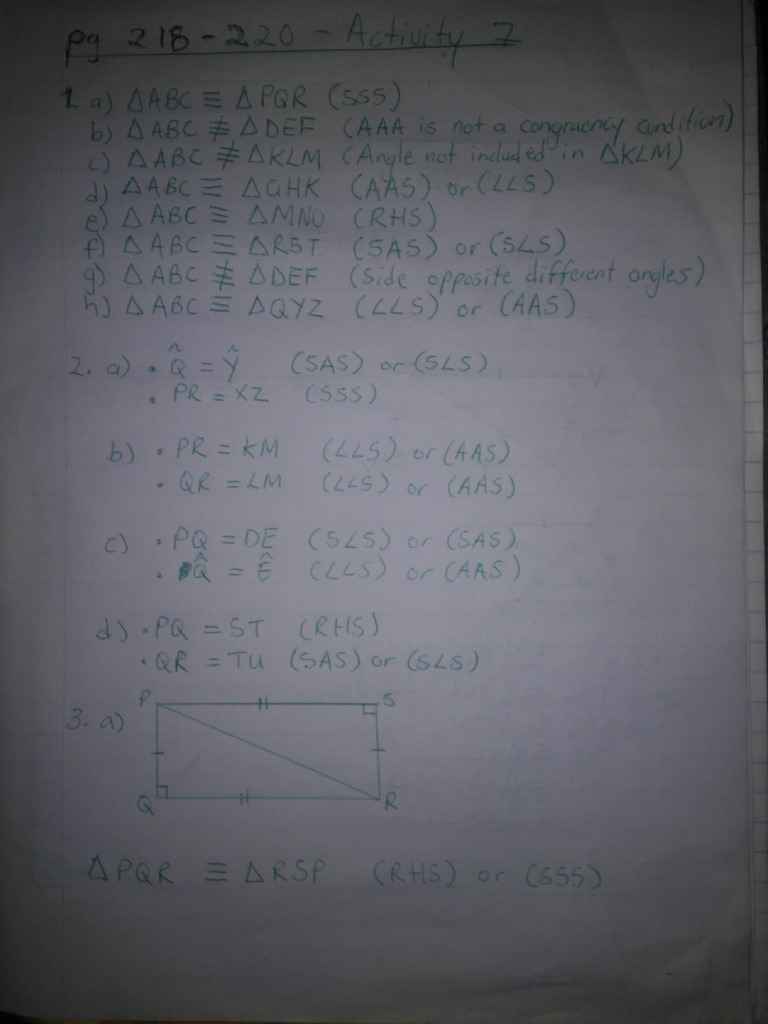 pg 218-220 - Activity 7
1 a) ΔABC ≡ ΔPQR (SSS)
b) ΔABC ≢ ΔDEF (AAA is not a congruency condition)
c) ΔABC ≢ ΔKLM (Angle not included in ΔKLM)
d) ΔABC ≡ ΔGHK (AAS) or (∠∠S)
e) ΔABC ≡ ΔMNO (RHS)
f) ΔABC ≡ ΔRST (SAS) or (S∠S)
g) ΔABC ≢ ΔDEF (Side opposite different angles)
h) ΔABC ≡ ΔQYZ (∠∠S) or (AAS)
2. a) • Q̂ = Ŷ (SAS) or (S∠S)
• PR = XZ (SSS)
b) • PR = KM (∠∠S) or (AAS)
• QR = LM (∠∠S) or (AAS)
c) • PQ = DE (S∠S) or (SAS)
• Q̂ = Ê (∠∠S) or (AAS)
d) • PQ = ST (RHS)
• QR = TU (SAS) or (S∠S)
P S
3. a)
Q R
ΔPQR ≡ ΔRSP (RHS) or (SSS)